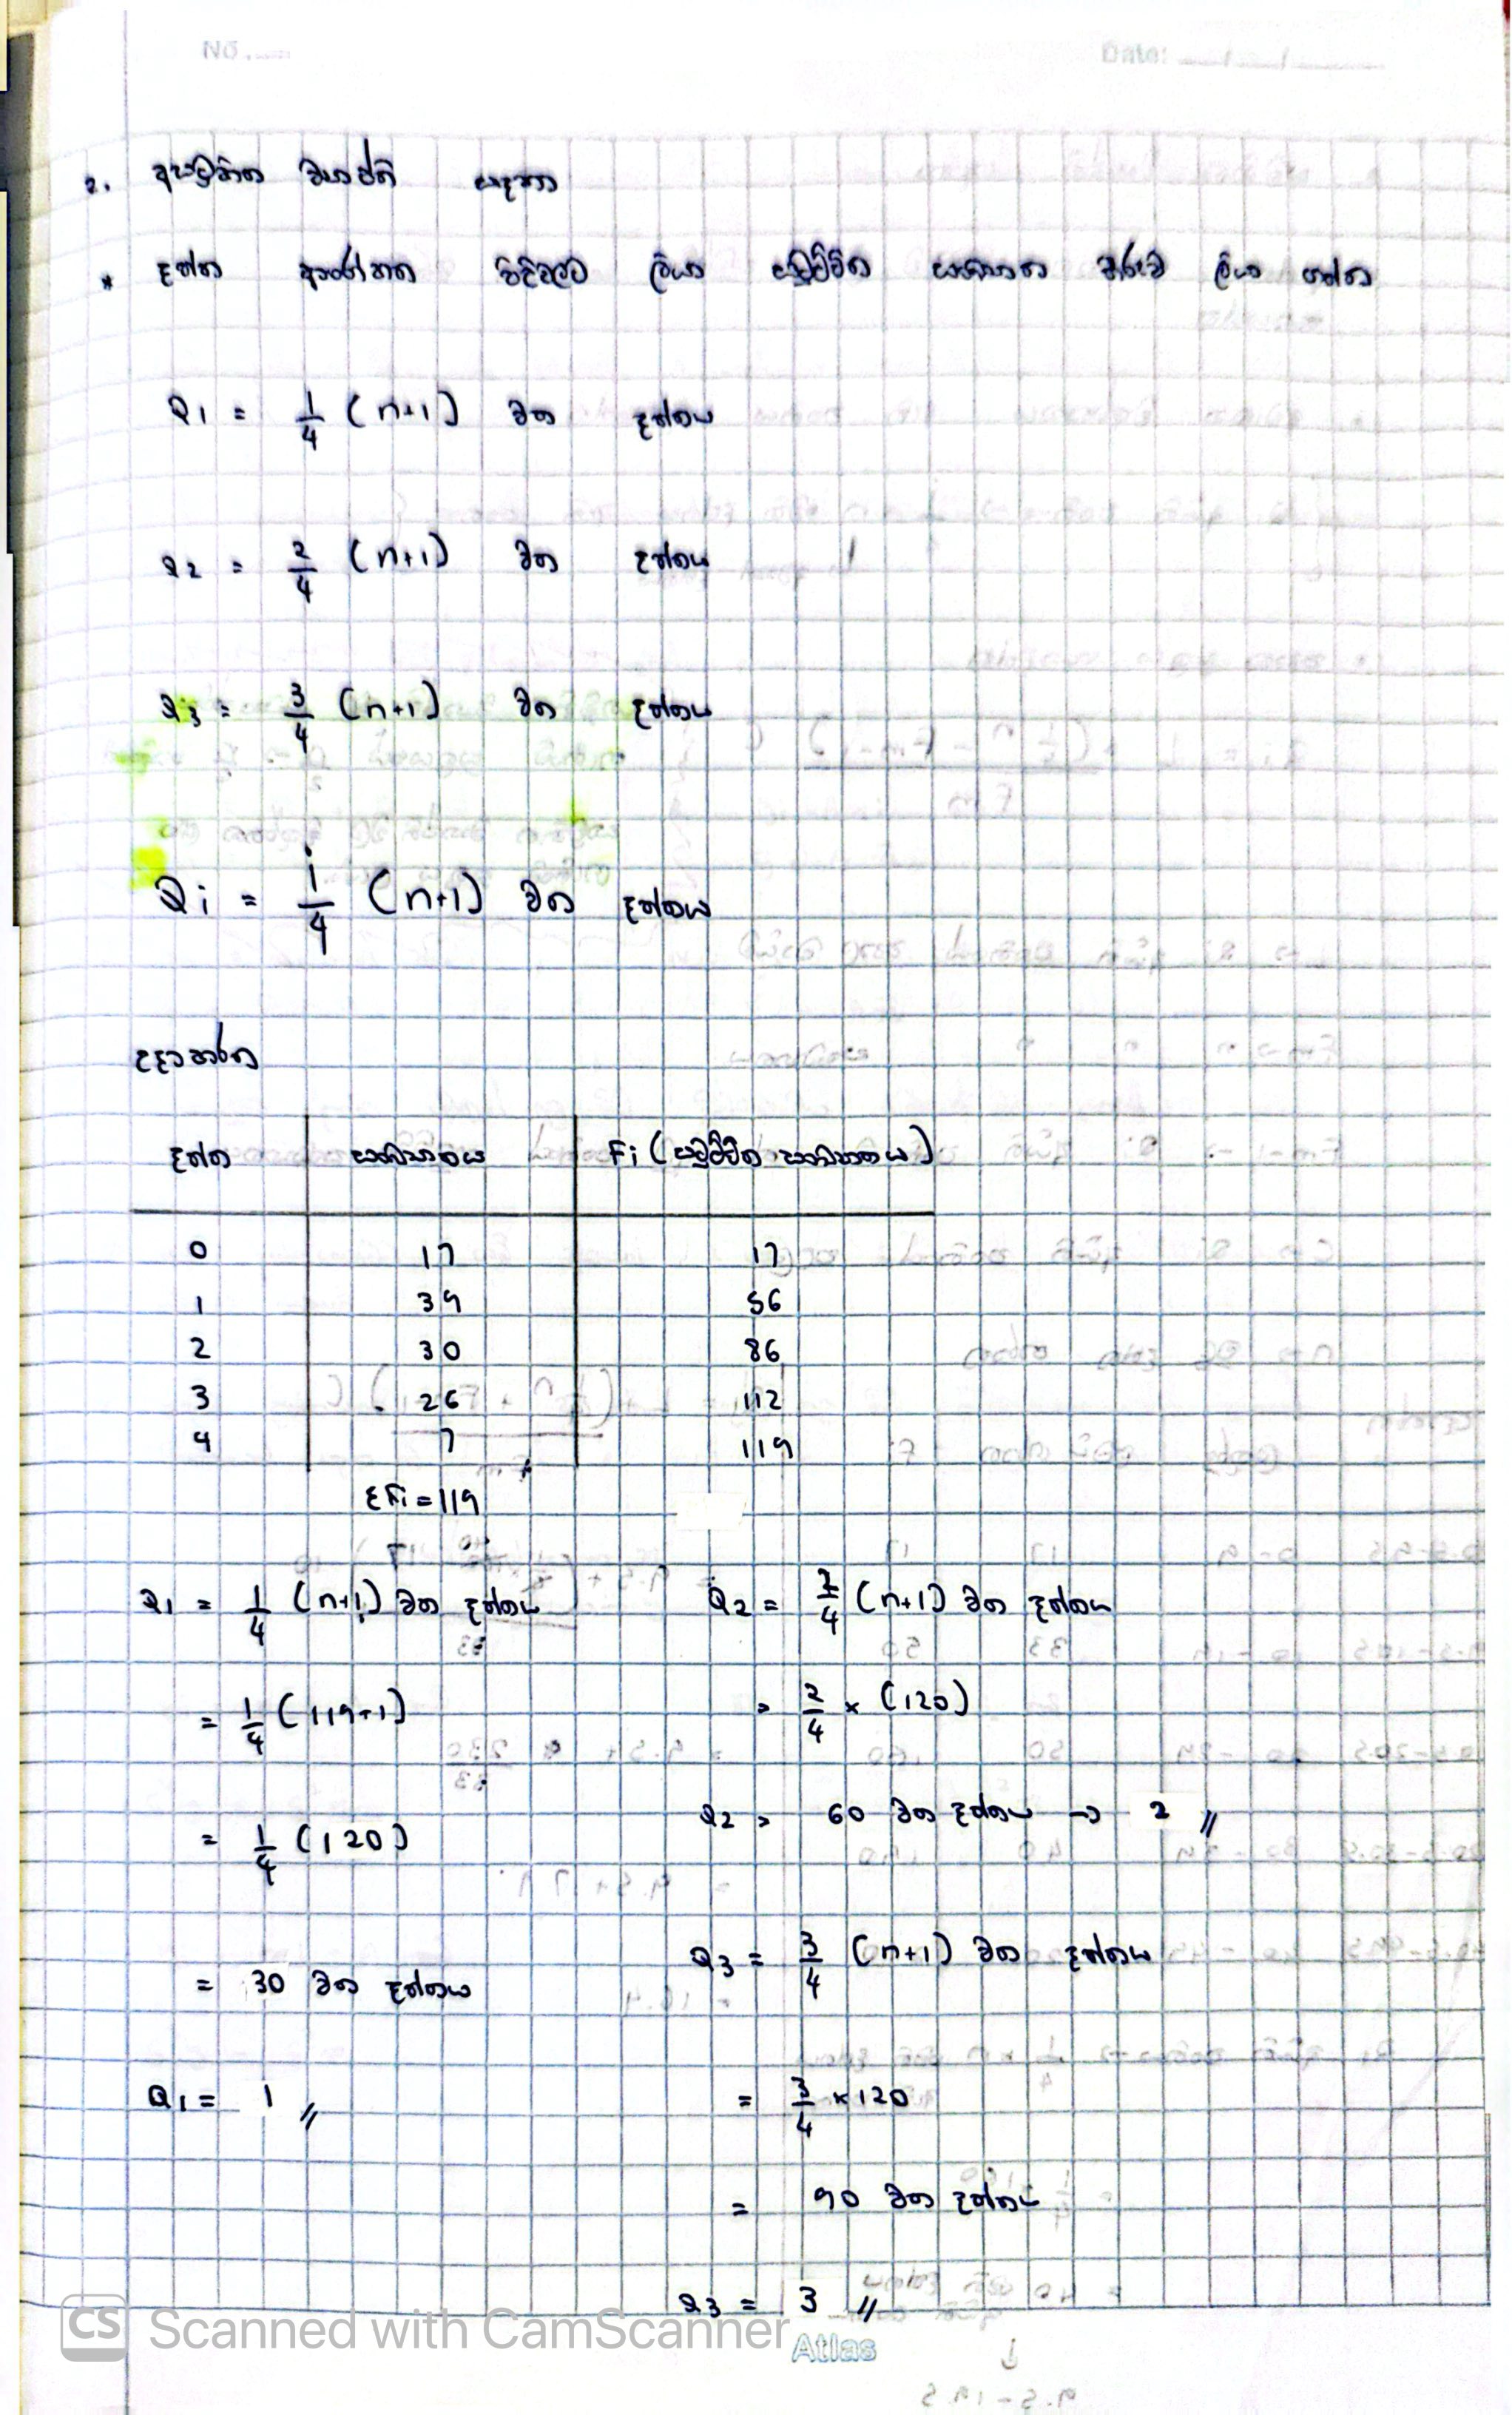 No.
Date:
2. අසමූහිත ව්‍යාප්ති සඳහා
* දත්ත ආරෝහණ පිළිවලට ලියා සමුච්චිත සංඛ්‍යාත තීරුව ලියා ගන්න
Q1 = 1/4 (n+1) වන දත්තය
Q2 = 2/4 (n+1) වන දත්තය
Q3 = 3/4 (n+1) වන දත්තය
Qi = i/4 (n+1) වන දත්තය
උදාහරණ
දත්ත සංඛ්‍යාතය Fi (සමුච්චිත සංඛ්‍යාතය)
0 17 17
1 39 56
2 30 86
3 26 112
4 7 119
Σfi = 119
Q1 = 1/4 (n+1) වන දත්තය
= 1/4 (119+1)
= 1/4 (120)
= 30 වන දත්තය
Q1 = 1 //
Q2 = 2/4 (n+1) වන දත්තය
= 2/4 × (120)
Q2 = 60 වන දත්තය → 2 //
Q3 = 3/4 (n+1) වන දත්තය
= 3/4 × 120
= 90 වන දත්තය
Q3 = 3 //
CS Scanned with CamScanner
Atlas